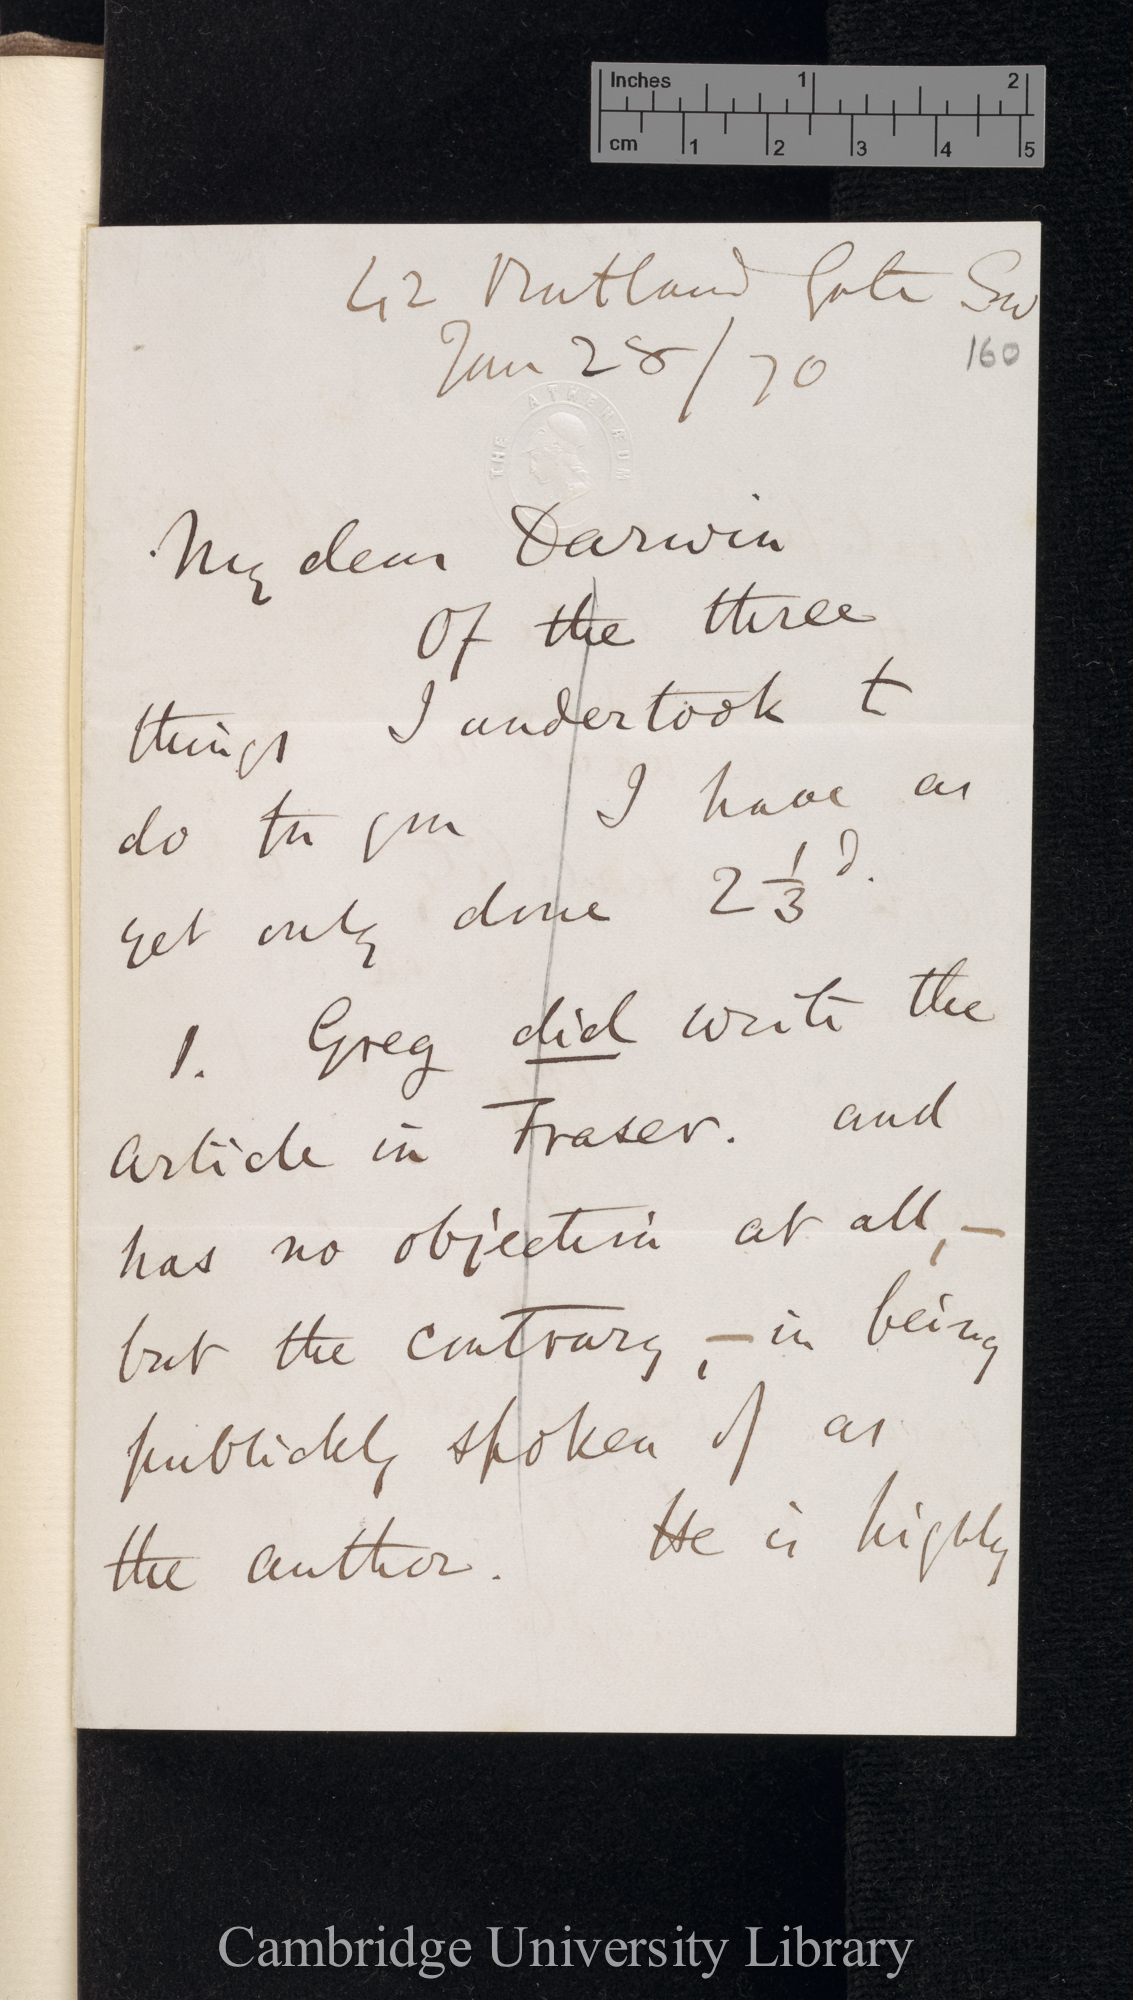 Inches 1 2
cm 1 2 3 4 5
42 Rutland Gate SW
Jan 28/70
160
THE ATHENÆUM
My dear Darwin
Of the three
things I undertook to
do for you I have as
yet only done 2 1/3 d.
1. Greg did write the
article in Fraser. and
has no objection at all, –
but the contrary, – in being
publickly spoken of as
the author. He is highly
Cambridge University Library